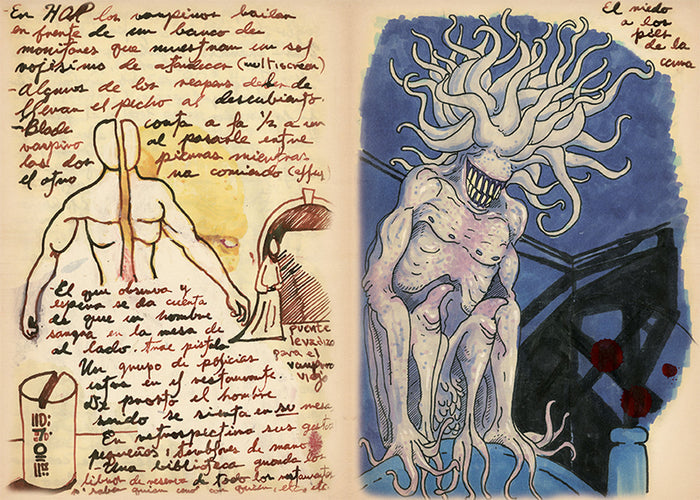 -En HOP los vampiros bailan
en frente de un banco de
monitores que muestran un sol
rojísimo de atardecer (multiscreen)
-Algunos de los reapers deben de
llevan el pecho al descubierto.
-Blade corta a la ½ a un
vampiro al pasarle entre
las dos piernas mientras
el otro va corriendo (effex)
-El que observa y
espera se da cuenta
de que un hombre
sangra en la mesa de
al lado. Trae pistola
puente
levadizo
para el
vampiro
viejo
Un grupo de policías
entra en el restaurante.
De pronto el hombre
se sienta en su mesa
En retrospectiva sus
pequeños temblores de mano
Una biblioteca guarda los
libros de reserva de todos los restaurantes
El miedo
a los
pies
de la
cama